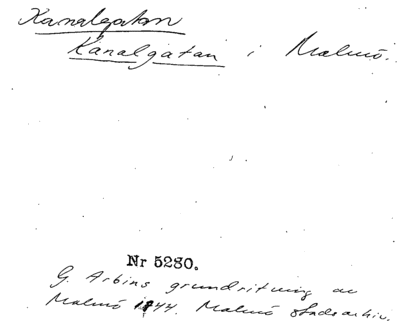 Kanalgatan
Kanalgatan i Malmö.
Nr 5280.
G. Arbins grundritning av
Malmö 1844. Malmö Stadsarkiv.